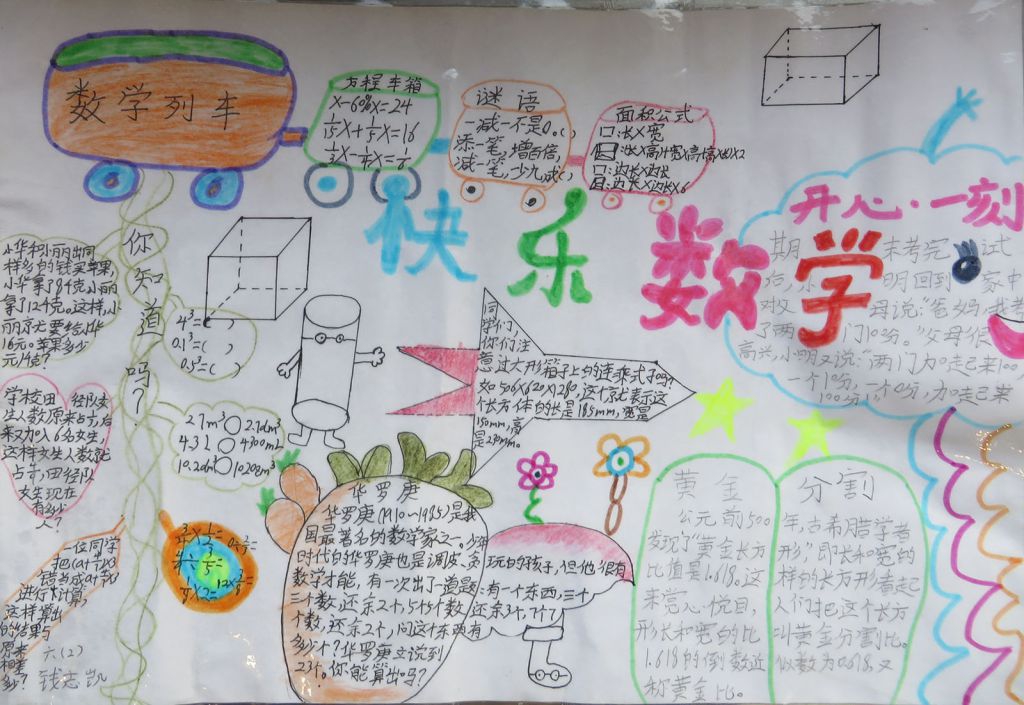 数学列车
方程车箱
X-60%X=24
谜语
一减一不是0。()
添一笔,增百倍,
减一笔,少九成()
面积公式
口:长X宽
口:边长X边长
快乐数学
开心·一刻
期末考完试
后,小明回到家中
对父母说:"爸妈,我考
了两门10分。"父母很
高兴,小明又说:"两门加起来100,
一个1分,一个0分,加起来
100分
你知道吗?
小华和小丽出同
样多的钱买苹果,
小华拿了84克,小丽
拿了124克。这样,小
丽就要给小华
16元。苹果多少
元/千克?
4³=( )
0.1³=( )
0.5²=( )
同学们,
你们注
意过大形箱子上的连乘式子吗?
如506X620X1780,这个就表示这
个长方体的长是185mm,宽是
150mm,高
是230mm。
学校田径队女
生人数原来占
来又加入6名女生,
这样女生人数就
占田径队
女生现在
有多少
人?
2.7m³○2.7dm³
4.3L○4300mL
10.2dm³○10208m³
把一位同学
错当成
进行计算,
这样算出
的结果与
原来
相差
多少?
六(2)
钱志凯
华罗庚
华罗庚(1910~1985)是我
国最著名的数学家之一。少年
时代的华罗庚也是调皮、贪玩的孩子,但他很有
数学才能,有一次出了一道题:有一个东西,三个
三个数,还余2个,5个5个数,还余3个,7个7
个数,还余2个,问这个东西有
多少个?华罗庚立说到
23个。你能算出吗?
黄金分割
公元前500年,古希腊学者
发现了"黄金长方形",即长和宽的
比值是1.618。这样的长方形看起
来赏心悦目,人们把这个长方
形长和宽的比叫黄金分割比。
1.618的倒数近似数为0.618,又
称黄金比。